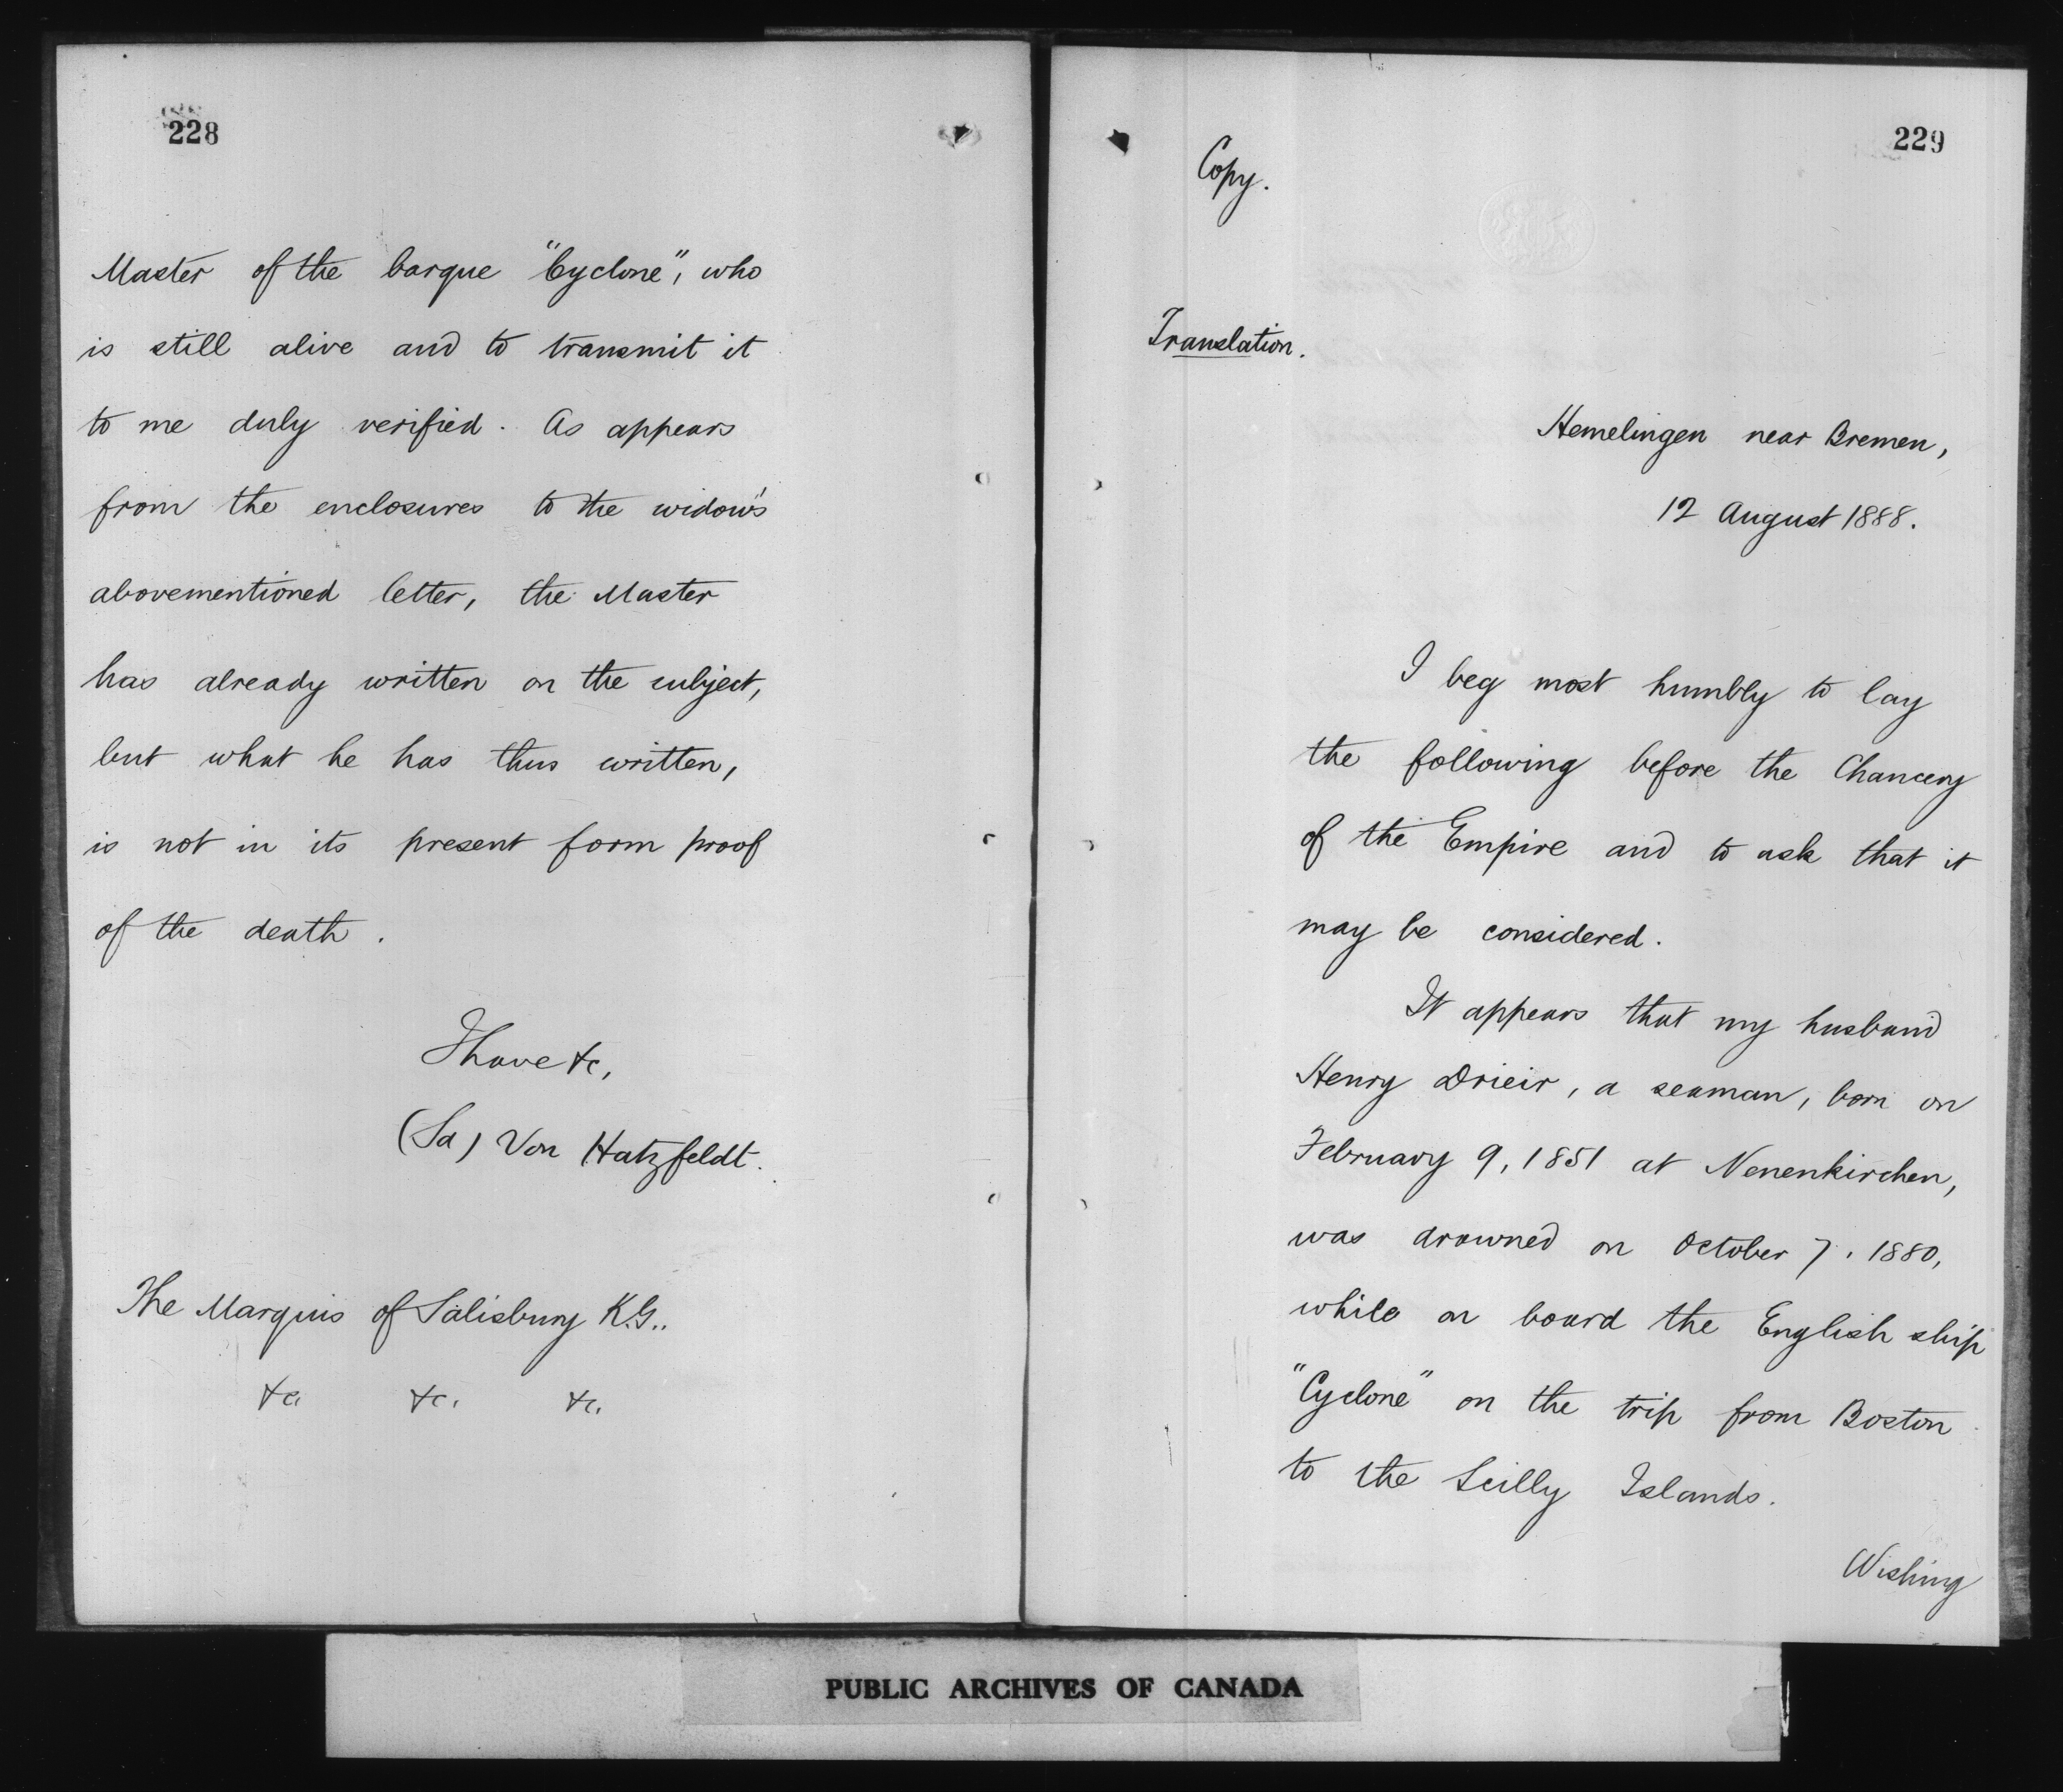 228
Master of the barque "Cyclone", who
is still alive and to transmit it
to me duly verified. As appears
from the enclosures to the widow's
abovementioned letter, the Master
has already written on the subject,
but what he has thus written,
is not in its present form proof
of the death.
I have &c,
(Sd) Von Hatzfeldt.
The Marquis of Salisbury K.G..
&c. &c. &c.
229
Copy.
Translation.
Hemelingen near Bremen,
12 August 1888.
I beg most humbly to lay
the following before the Chancery
of the Empire and to ask that it
may be considered.
It appears that my husband
Henry Drieir, a seaman, born on
February 9, 1851 at Nenenkirchen,
was drowned on October 7. 1880,
while on board the English ship
"Cyclone" on the trip from Boston
to the Scilly Islands.
Wishing
PUBLIC ARCHIVES OF CANADA